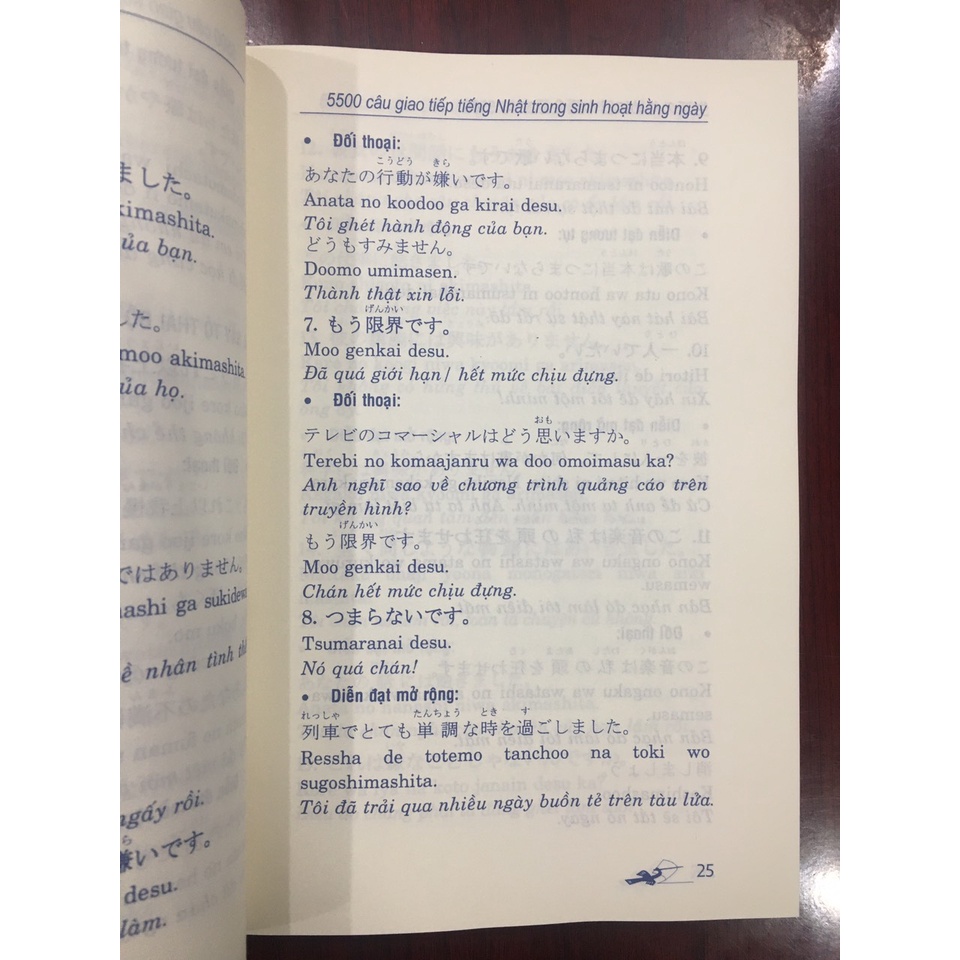 ました。
kimashita.
ủa bạn.
した。
moo akimashita.
ủa họ.
ではありません。
ề nhân tình
ngấy rồi.
ら
嫌いです。
desu.
làm.
5500 câu giao tiếp tiếng Nhật trong sinh hoạt hằng ngày
• Đối thoại:
こうどう きら
あなたの行動が嫌いです。
Anata no koodoo ga kirai desu.
Tôi ghét hành động của bạn.
どうもすみません。
Doomo umimasen.
Thành thật xin lỗi.
げんかい
7. もう限界です。
Moo genkai desu.
Đã quá giới hạn/ hết mức chịu đựng.
• Đối thoại:
おも
テレビのコマーシャルはどう思いますか。
Terebi no komaajanru wa doo omoimasu ka?
Anh nghĩ sao về chương trình quảng cáo trên
truyền hình?
げんかい
もう限界です。
Moo genkai desu.
Chán hết mức chịu đựng.
8. つまらないです。
Tsumaranai desu.
Nó quá chán!
• Diễn đạt mở rộng:
れっしゃ たんちょう とき す
列車でとても単調な時を過ごしました。
Ressha de totemo tanchoo na toki wo
sugoshimashita.
Tôi đã trải qua nhiều ngày buồn tẻ trên tàu lửa.
25